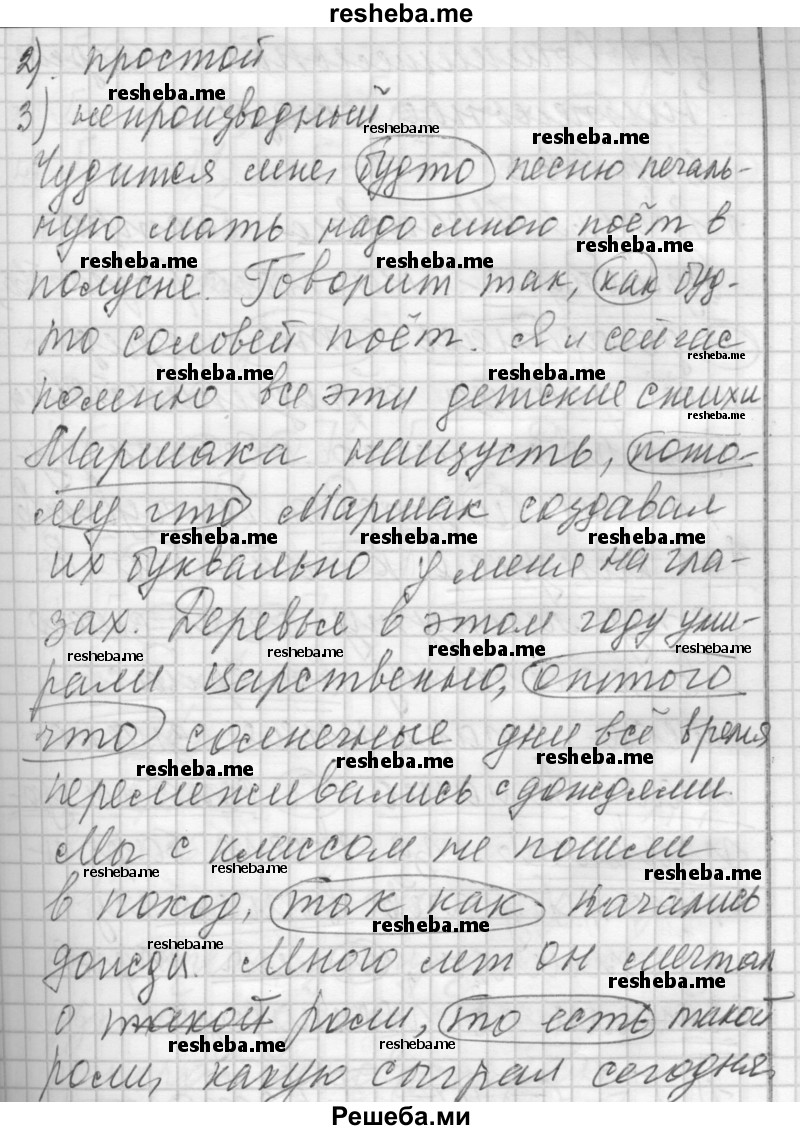 resheba.me
2). простой
resheba.me
3) непроизводный
resheba.me
resheba.me
Чудится мне, будто песню печаль-
ную мать надо мною поёт в
resheba.me
resheba.me resheba.me
полусне. Говорит так, как буд-
то соловей поёт. Я и сейчас
resheba.me
resheba.me resheba.me
помню все эти детские стихи
resheba.me
Маршака наизусть, пото-
му что Маршак создавал
resheba.me resheba.me resheba.me
их буквально у меня на гла-
зах. Деревья в этом году уми-
resheba.me resheba.me resheba.me resheba.me
рали царственно, оттого
что солнечные дни всё время
resheba.me resheba.me resheba.me
перемеживались с дождями.
Мы с классом не пошли
resheba.me resheba.me resheba.me
в поход, так как начались
resheba.me
resheba.me
дожди. Много лет он мечтал
resheba.me
о такой роли, то есть такой
resheba.me resheba.me
роли, какую сыграл сегодня.
Решеба.ми